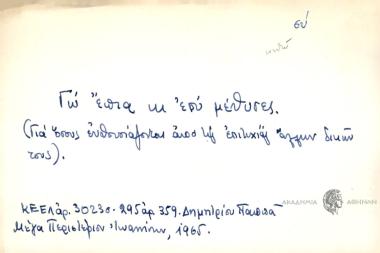 σύ
Γώ ἔπια κι ἐσύ μέθυσες.
(Γιά ὅσους ἐνθουσιάζονται ἀπό τίς ἐπιτυχίες ἄλλων δικῶν
τους).
ΚΕΕΛ ἀρ. 3023σ. 295 ἀρ 359. Δημητρίου Παππᾶ
Μέγα Περιστέριον Ἰωαννίνων, 1965.
ΑΚΑΔΗΜΙΑ ΑΘΗΝΩΝ